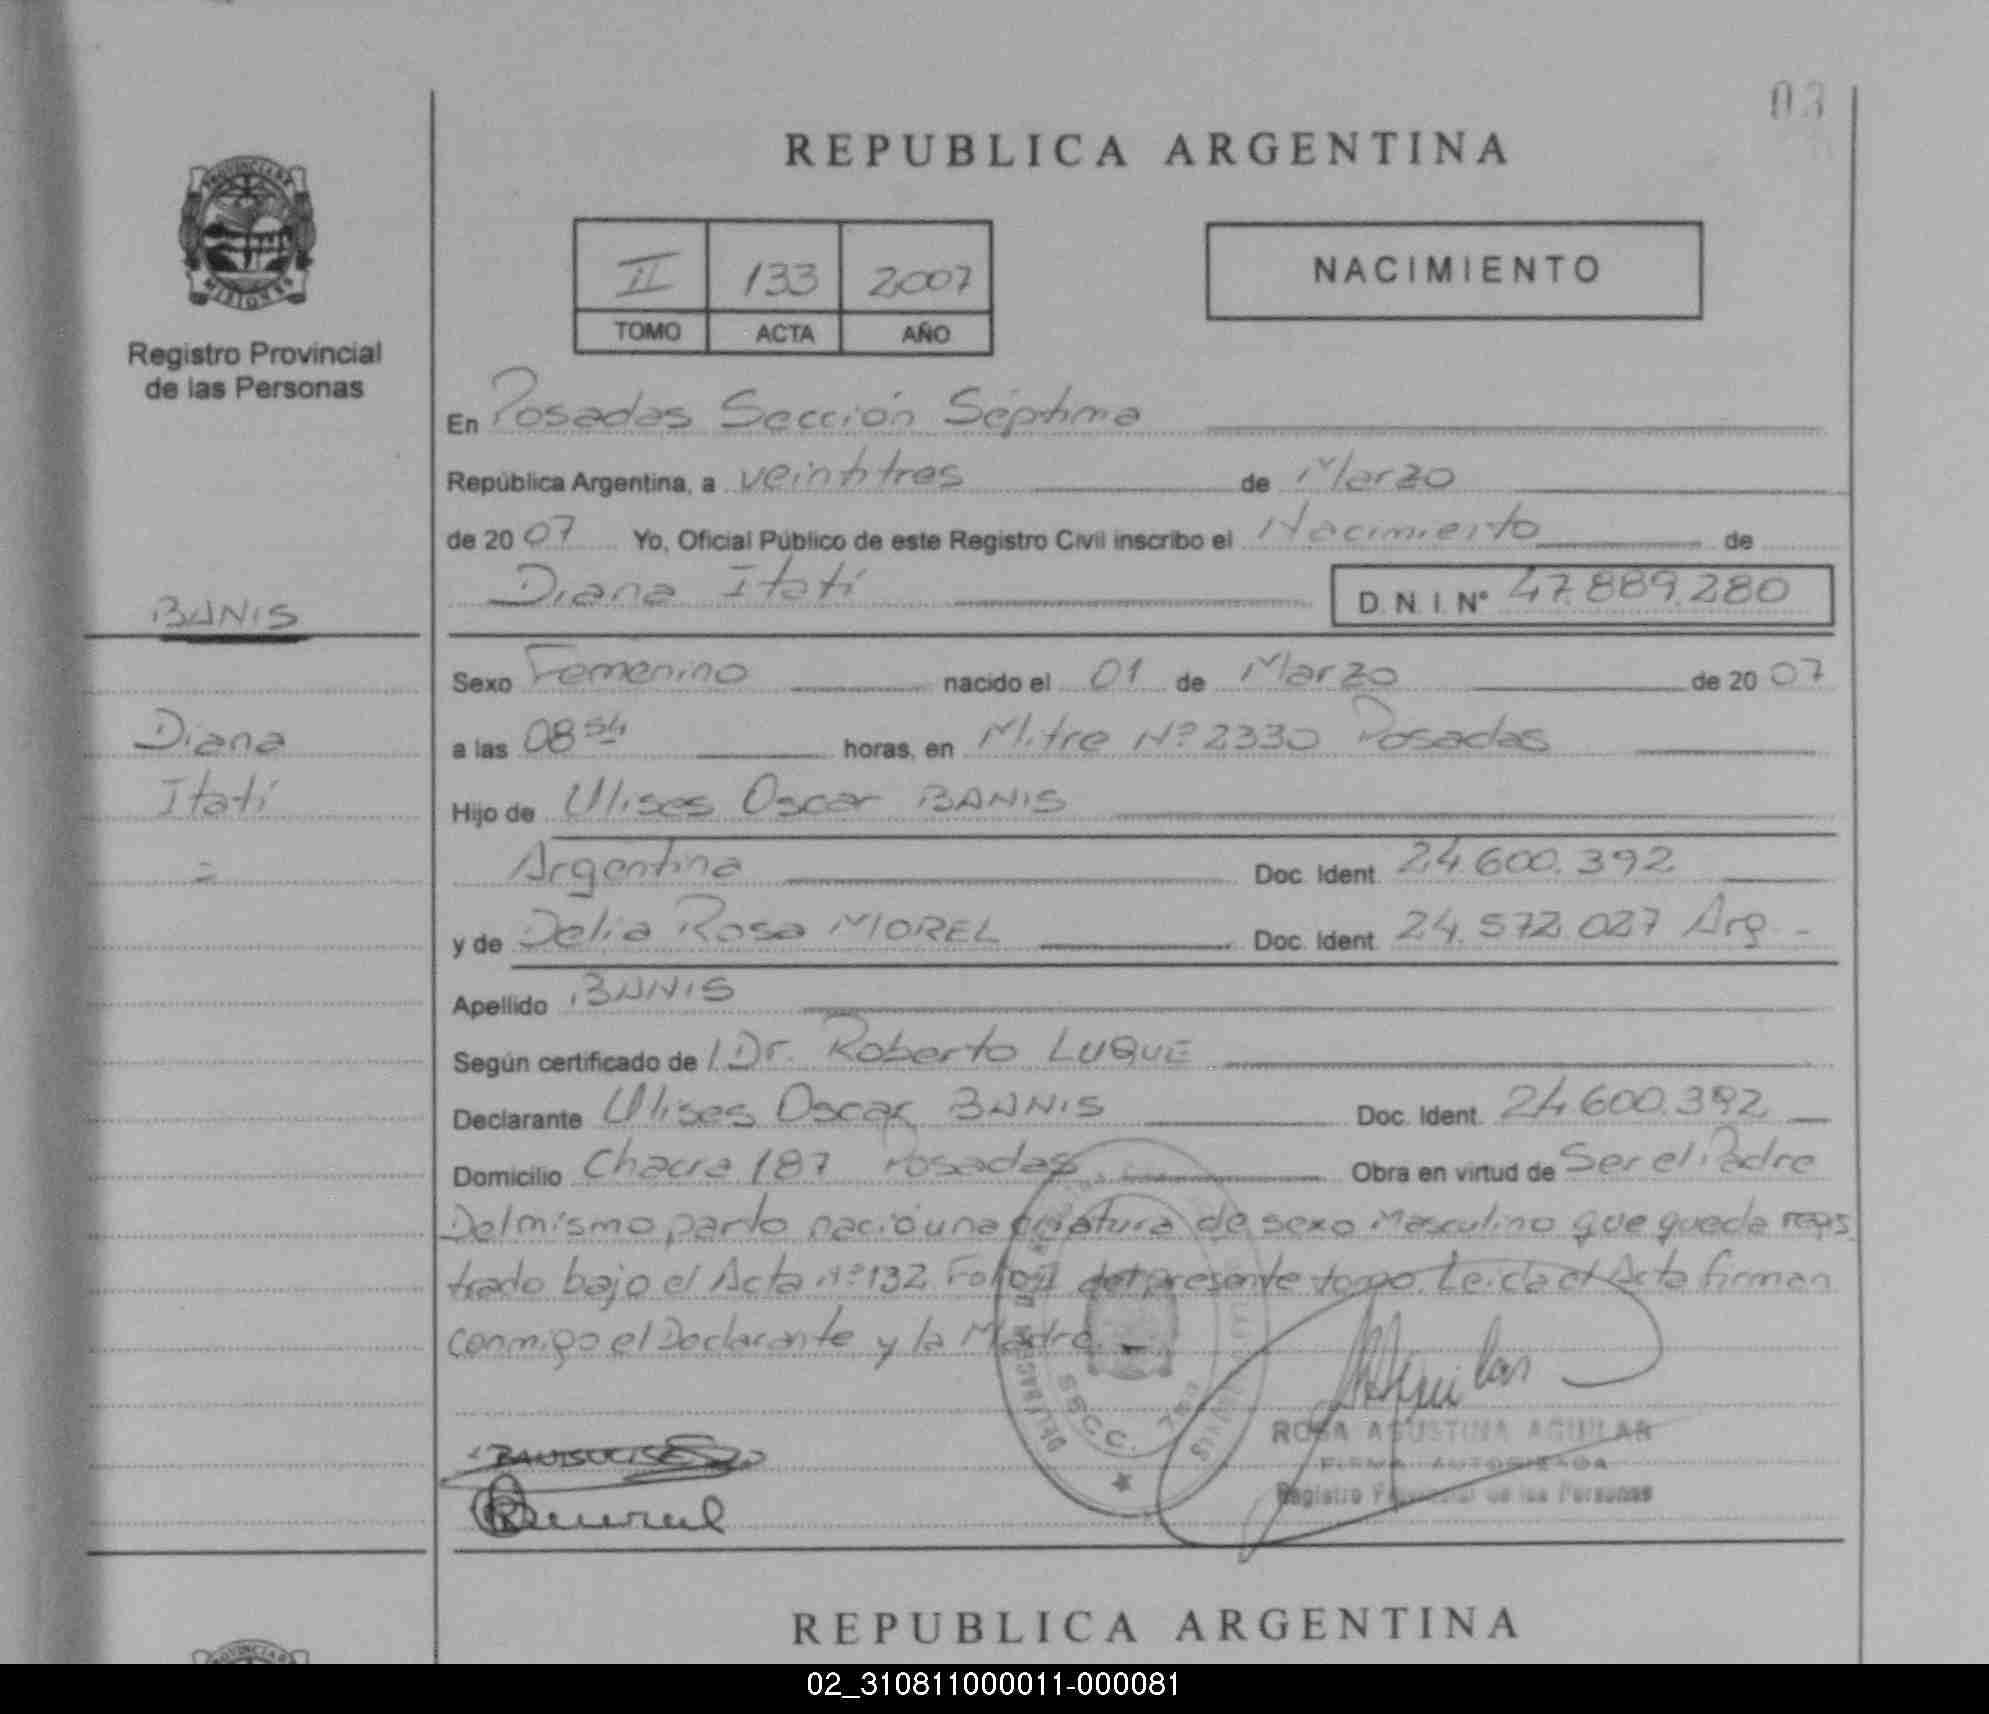 03
REPUBLICA ARGENTINA
PROVINCIA DE
MISIONES
Registro Provincial
de las Personas
II 133 2007
TOMO ACTA AÑO
NACIMIENTO
En Posadas Sección Séptima
República Argentina, a veintitres de Marzo
de 2007 Yo, Oficial Público de este Registro Civil inscribo el Nacimiento de
Diana Itatí D.N.I. N° 47.889.280
BANIS
Diana
Itatí
=
Sexo Femenino nacido el 01 de Marzo de 2007
a las 08 54 horas, en Mitre Nº 2330 Posadas
Hijo de Ulises Oscar BANIS
Argentina Doc. Ident. 24.600.392
y de Delia Rosa MOREL Doc. Ident. 24.572.027 Arg -
Apellido BANIS
Según certificado de Dr. Roberto LUQUE
Declarante Ulises Oscar BANIS Doc. Ident. 24.600.392
Domicilio Chacra 187 Posadas Obra en virtud de Ser el Padre
Del mismo parto nació una criatura de sexo Masculino que queda regis
trado bajo el Acta Nº 132 Folio del presente tomo. Leida el Acta firman
conmigo el Declarante y la Madre.
ROSA AGUSTINA AGUILAR
FIRMA AUTORIZADA
Registro Provincial de las Personas
REPUBLICA ARGENTINA
02_310811000011-000081